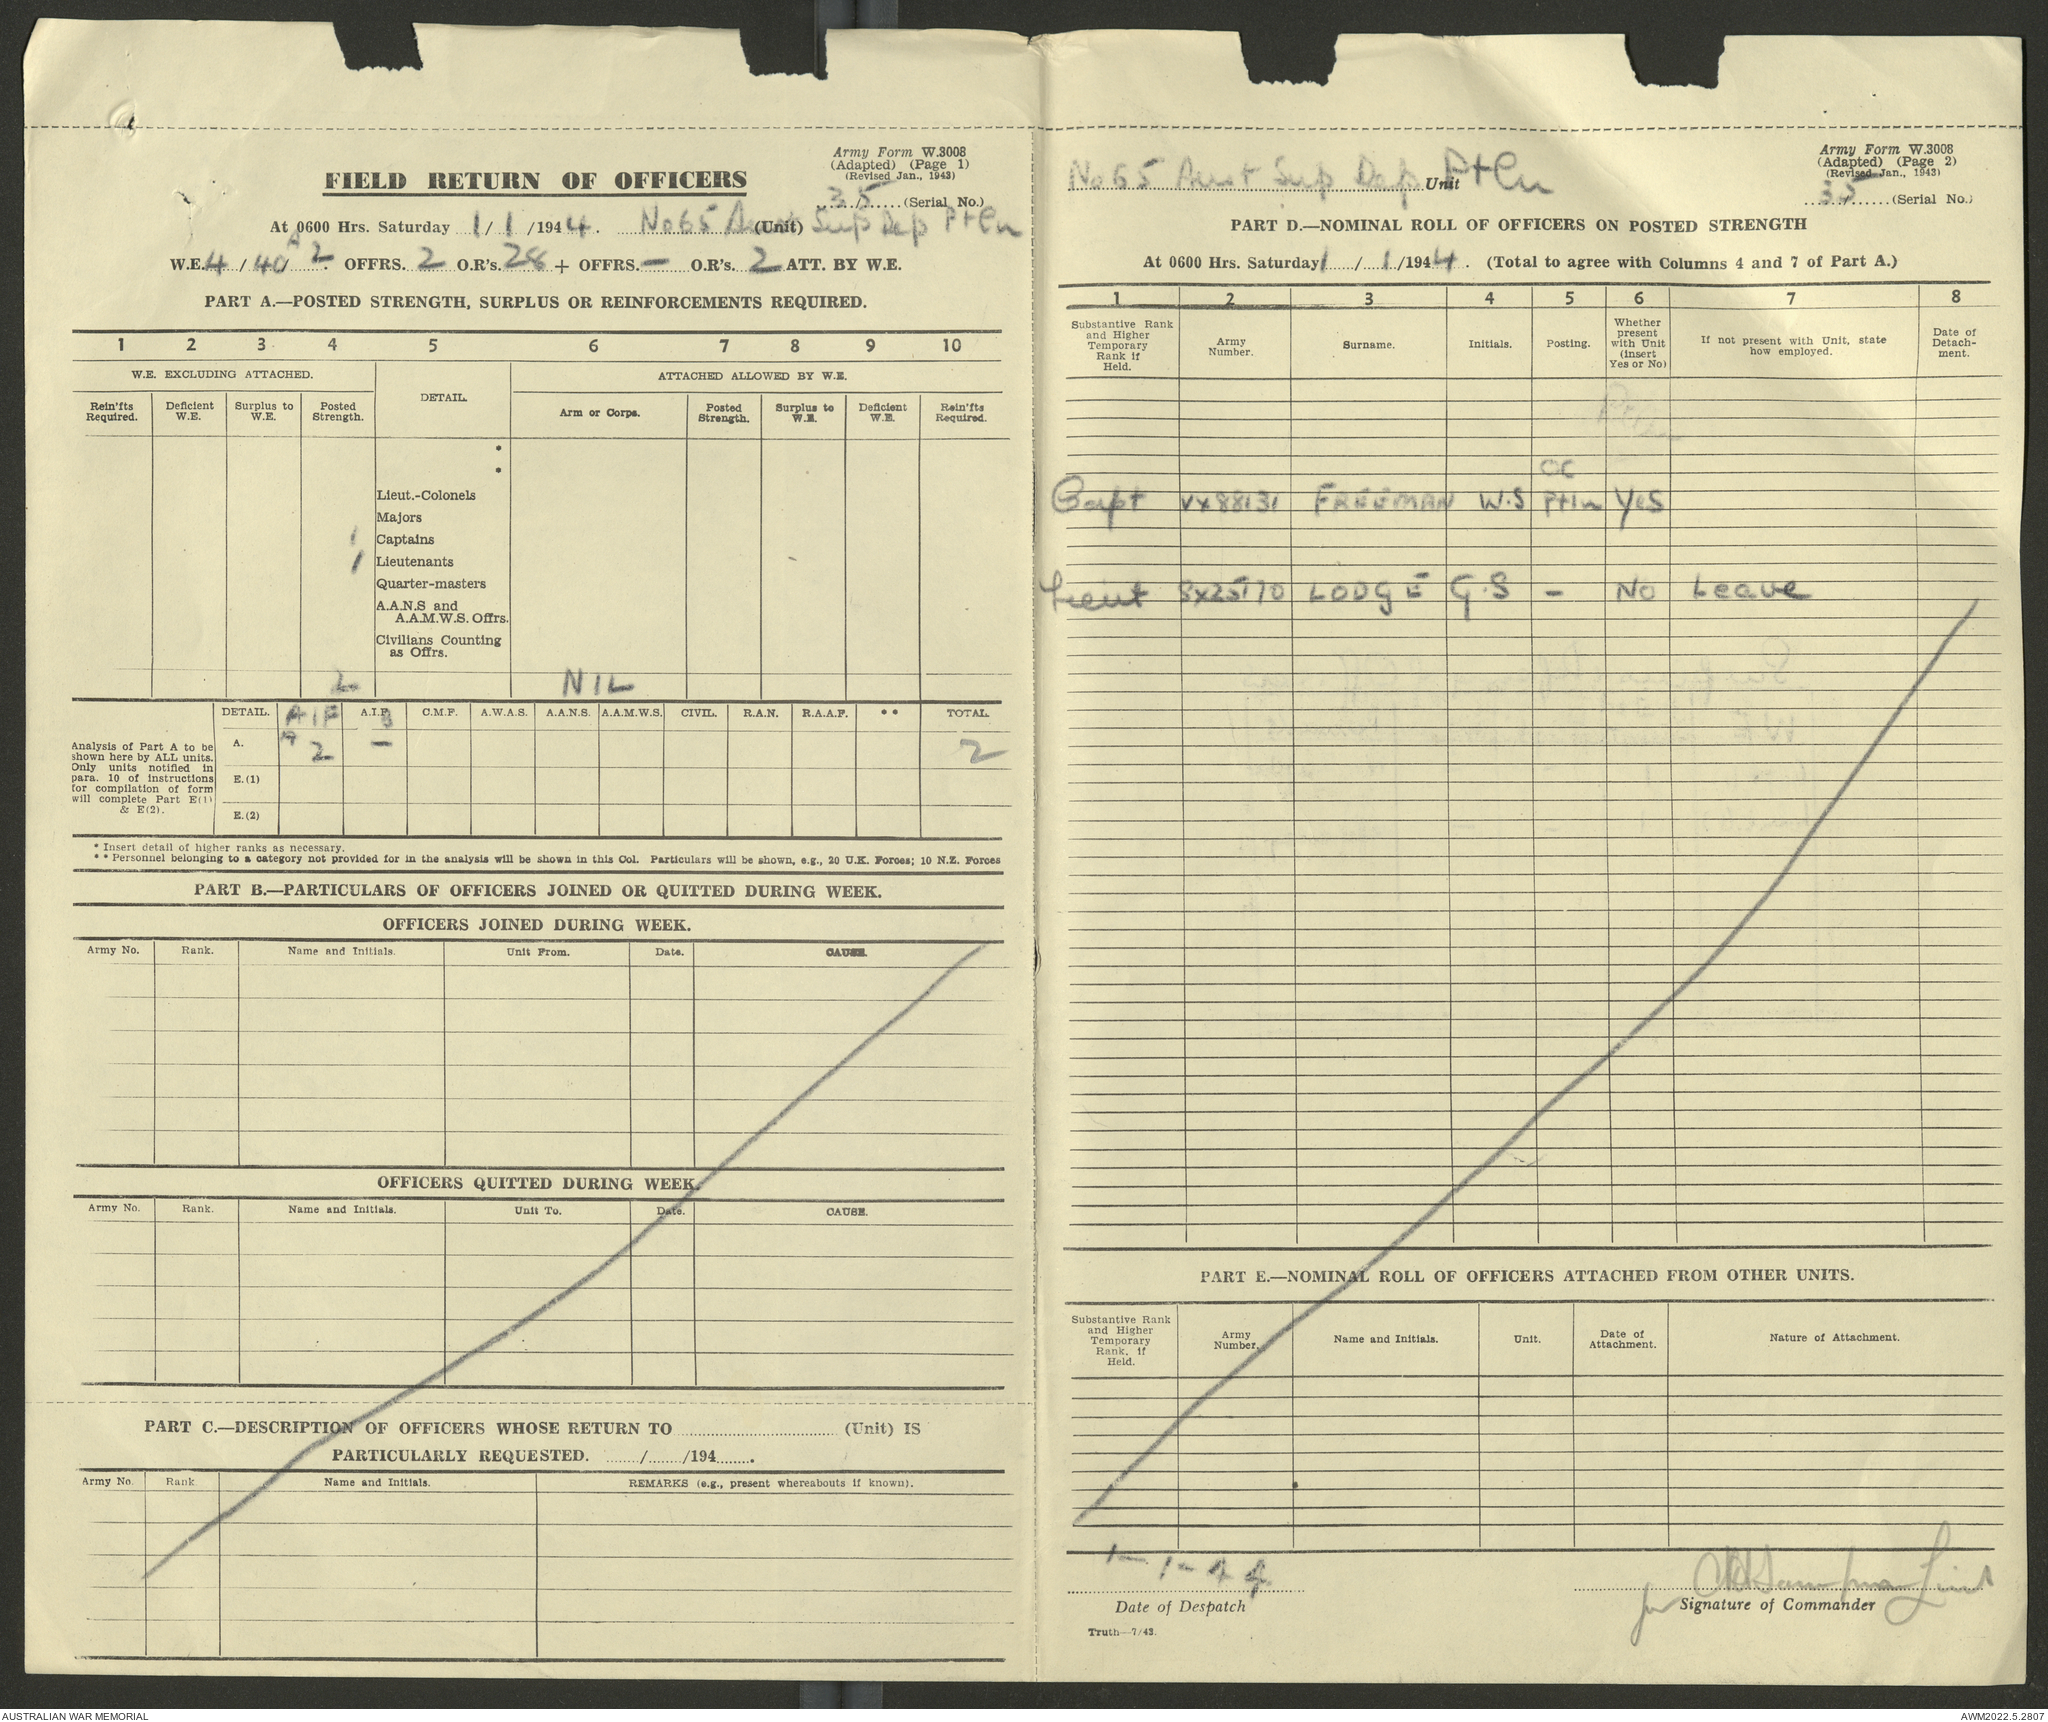 Army Form W.3008
(Adapted) (Page 1)
(Revised Jan., 1943)
35 (Serial No.)
FIELD RETURN OF OFFICERS
At 0600 Hrs. Saturday 1/1/1944. No 65 Aust Sup Dep Ptln (Unit)
W.E. 4/40A/2. OFFRS. 2 O.R's. 28 + OFFRS. — O.R's. 2 ATT. BY W.E.
PART A.—POSTED STRENGTH, SURPLUS OR REINFORCEMENTS REQUIRED.
1 2 3 4 5 6 7 8 9 10
W.E. EXCLUDING ATTACHED. DETAIL. ATTACHED ALLOWED BY W.E.
Rein'fts Required. Deficient W.E. Surplus to W.E. Posted Strength. Arm or Corps. Posted Strength. Surplus to W.E. Deficient W.E. Rein'fts Required.
*
*
Lieut.-Colonels
Majors
1 Captains
1 Lieutenants
Quarter-masters
A.A.N.S and
A.A.M.W.S. Offrs.
Civilians Counting
as Offrs.
2 NIL
DETAIL. AIF A A.I.F. B C.M.F. A.W.A.S. A.A.N.S. A.A.M.W.S. CIVIL. R.A.N. R.A.A.F. ** TOTAL.
Analysis of Part A to be
shown here by ALL units.
Only units notified in
para. 10 of instructions
for compilation of form
will complete Part E(1)
& E(2).
A. 2 — 2
E.(1)
E.(2)
* Insert detail of higher ranks as necessary.
** Personnel belonging to a category not provided for in the analysis will be shown in this Col. Particulars will be shown, e.g., 20 U.K. Forces; 10 N.Z. Forces
PART B.—PARTICULARS OF OFFICERS JOINED OR QUITTED DURING WEEK.
OFFICERS JOINED DURING WEEK.
Army No. Rank. Name and Initials. Unit From. Date. CAUSE.
OFFICERS QUITTED DURING WEEK.
Army No. Rank. Name and Initials. Unit To. Date. CAUSE.
PART C.—DESCRIPTION OF OFFICERS WHOSE RETURN TO (Unit) IS
PARTICULARLY REQUESTED. / /194 .
Army No. Rank Name and Initials. REMARKS (e.g., present whereabouts if known).
Army Form W.3008
(Adapted) (Page 2)
(Revised Jan., 1943)
35 (Serial No.)
No 65 Aust Sup Dep Ptln Unit
PART D.—NOMINAL ROLL OF OFFICERS ON POSTED STRENGTH
At 0600 Hrs. Saturday 1/1/1944. (Total to agree with Columns 4 and 7 of Part A.)
1 2 3 4 5 6 7 8
Substantive Rank and Higher Temporary Rank if Held. Army Number. Surname. Initials. Posting. Whether present with Unit (insert Yes or No) If not present with Unit, state how employed. Date of Detach-ment.
OC
Capt VX88131 FREEMAN W.S Ptln Yes
Lieut SX25170 LODGE G.S — No Leave
PART E.—NOMINAL ROLL OF OFFICERS ATTACHED FROM OTHER UNITS.
Substantive Rank and Higher Temporary Rank, if Held. Army Number. Name and Initials. Unit. Date of Attachment. Nature of Attachment.
1-1-44
Date of Despatch
for Lieut
Signature of Commander
Truth—7/43.
AUSTRALIAN WAR MEMORIAL
AWM2022.5.2807